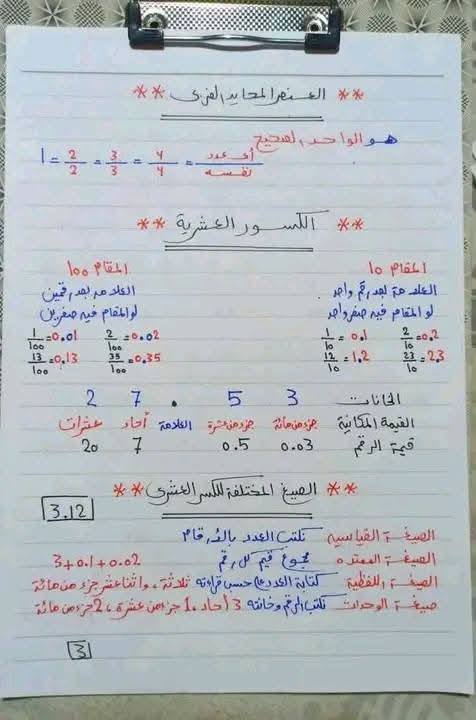 ** العنصر المحايد الضربى **
هو الواحد الصحيح
1 = 2/2 = 3/3 = 4/4 = أى عدد/نفسه
** الكسور العشرية **
المقام 10
العلامة بعد رقم واحد
لو المقام فيه صفر واحد
1/10 = 0.1 2/10 = 0.2
12/10 = 1.2 23/10 = 2.3
المقام 100
العلامة بعد رقمين
لو المقام فيه صفرين
1/100 = 0.01 2/100 = 0.02
13/100 = 0.13 35/100 = 0.35
الخانات 3 5 . 7 2
القيمة المكانية جزء من مائة جزء من عشرة العلامة أحاد عشرات
قيمة الرقم 0.03 0.5 7 20
** الصيغ المختلفة للكسر العشرى **
3.12
الصيغة القياسيه تكتب العدد بالأرقام
الصيغة الممتده مجموع قيم كل رقم 3+0.1+0.02
الصيغة اللفظية كتابة العدد على حسب قراءته ثلاثة، واثنا عشر جزء من مائة
صيغة الوحدات تكتب الرقم وخانته 3 أحاد، 1 جزء من عشرة، 2 جزء من مائة
3